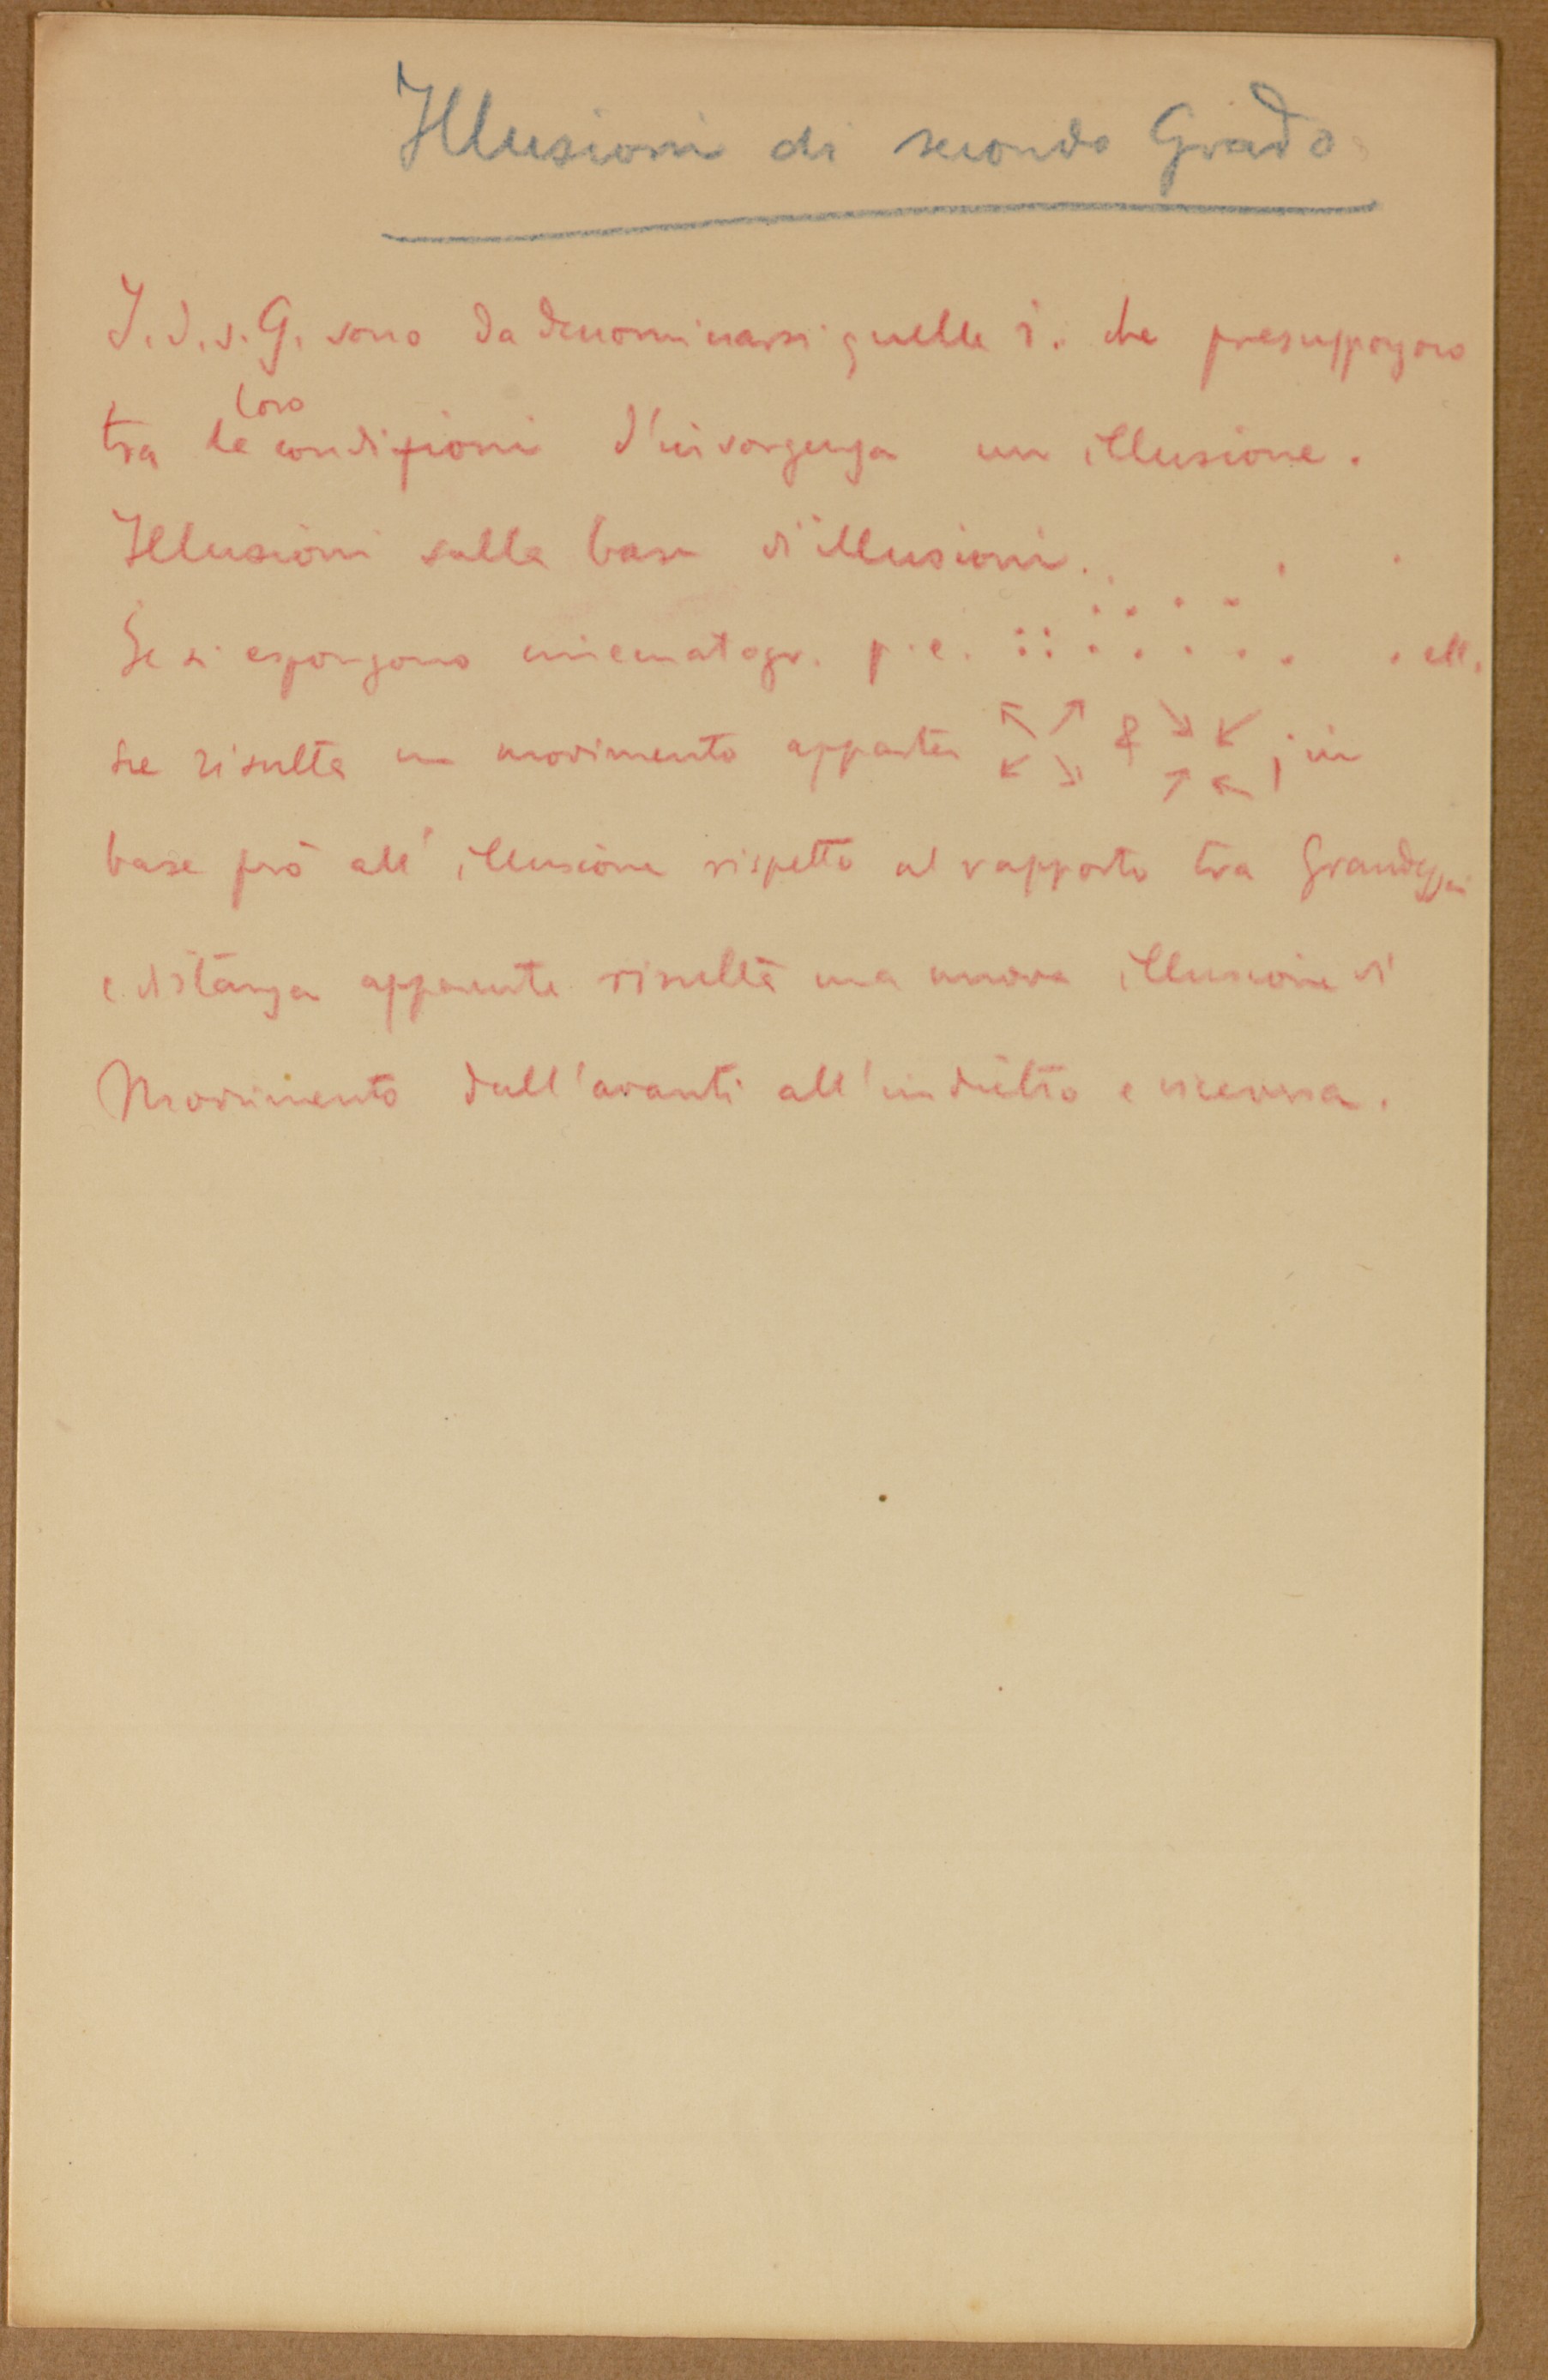 Illusioni di secondo Grado
I. d. s. G. sono da denominarsi quelle i. che presuppongono
tra le loro condizioni d'insorgenza un illusione.
Illusioni sulla base d'illusioni.
Se si espongono cinematogr. p. e. : : . . . . . . . . . . ett.
ne risulta un movimento apparten ↖ ↗ ↙ ↘ & ↘ ↙ ↗ ↖ ; in
base però all'illusione rispetto al rapporto tra Grandezza
e distanza apparente risulta una nuova illusione di
Movimento dall'avanti all'indietro e viceversa.